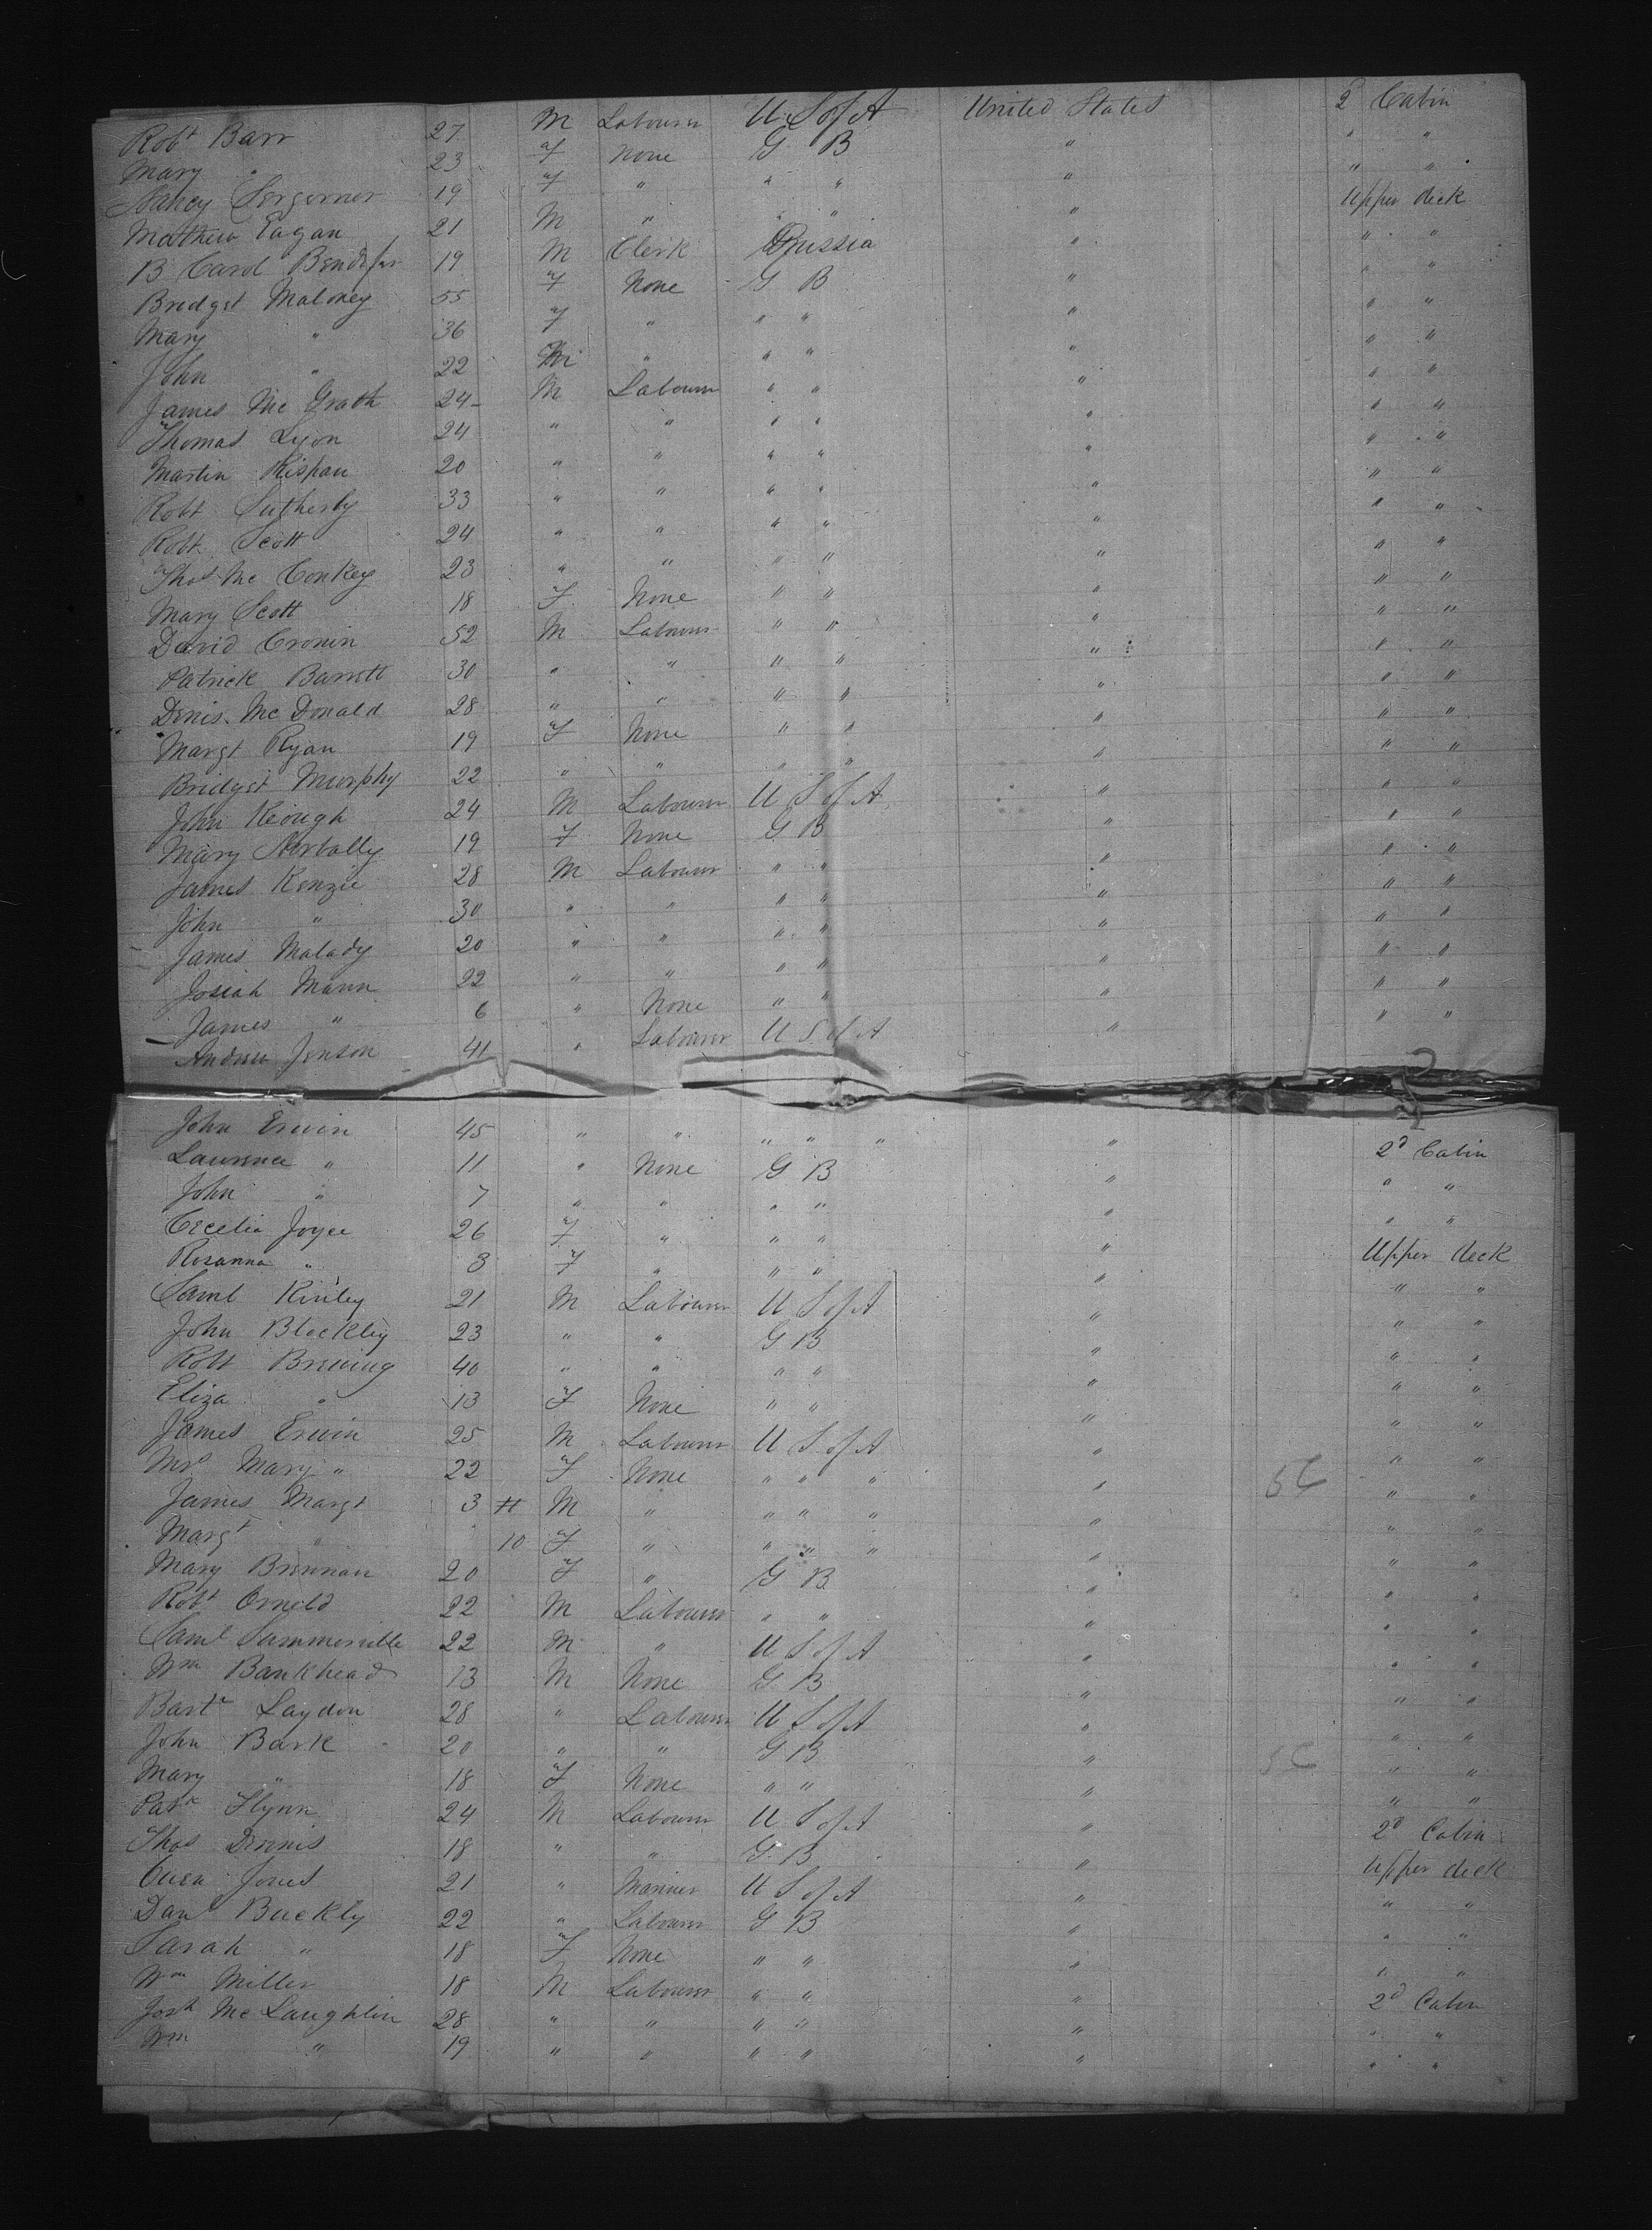 Robt Barr 27 M Labourer U S of A United States 2d Cabin
Mary " 23 F None G B " " "
Nancy 19 F " " " " " "
Mathew Eagan 21 M " " " " Upper deck
B Carol 19 M Clerk Prussia " " "
Bridget Maloney 55 F None G B " " "
Mary " 36 F " " " " " "
John " 22 M " " " " " "
James Mc Grath 24 M Labourer " " " " "
Thomas Lyon 24 " " " " " " "
Martin Rispau 20 " " " " " " "
Robt Sutherby 33 " " " " " " "
Robt Scott 24 " " " " " " "
Thos Mc Conkey 23 " " " " " " "
Mary Scott 18 F None " " " " "
David Cronin 52 M Labourer " " " " "
Patrick Barrett 30 " " " " " " "
Denis Mc Donald 28 " " " " " " "
Margt Ryan 19 F None " " " " "
Bridget Murphy 22 " " " " " " "
John Keough 24 M Labourer U S of A " " "
Mary 19 F None G B " " "
James Kenzie 28 M Labourer " " " " "
John " 30 " " " " " " "
James Malady 20 " " " " " " "
Josiah Mann 22 " " " " " " "
James " 6 " None " " " " "
Andrew Jenson 41 " Labourer U S of A " " "
John Erwin 45 " " " " " " 2d Cabin
Lawrence " 11 " None G B " " "
John " 7 " " " " " " "
Cecelia Joyce 26 F " " " " Upper deck
Rosanna " 3 F " " " " " "
Saml Kinley 21 M Labourer U S of A " " "
John Blockley 23 " " G B " " "
Robt Brewing 40 " " " " " " "
Eliza " 13 F None " " " " "
James Erwin 25 M Labourer U S of A " " "
Mrs Mary " 22 F None " " " " " "
James Margt 3 M " " " " " " "
Margt " 10 F " " " " " " "
Mary Brennan 20 F " G B " " "
Robt Orneld 22 M Labourer " " " " "
Saml Summerville 22 M " U S of A " " "
Wm Bankhead 13 M None G B " " "
Bartw Laydon 28 " Labourer U S of A " " "
John Bark 20 " " G B " " "
Mary " 18 F None " " " " "
Patk Flynn 24 M Labourer U S of A " 2d Cabin
Thos Dennis 18 " " G B " Upper deck
Owen Jones 21 " Mariner U S of A " " "
Danl Buckly 22 " Labourer G B " " "
Sarah " 18 F None " " " " "
Wm Miller 18 M Labourer " " " 2d Cabin
Josh Mc Laughlin 28 " " " " " " "
Wm " 19 " " " " " " "